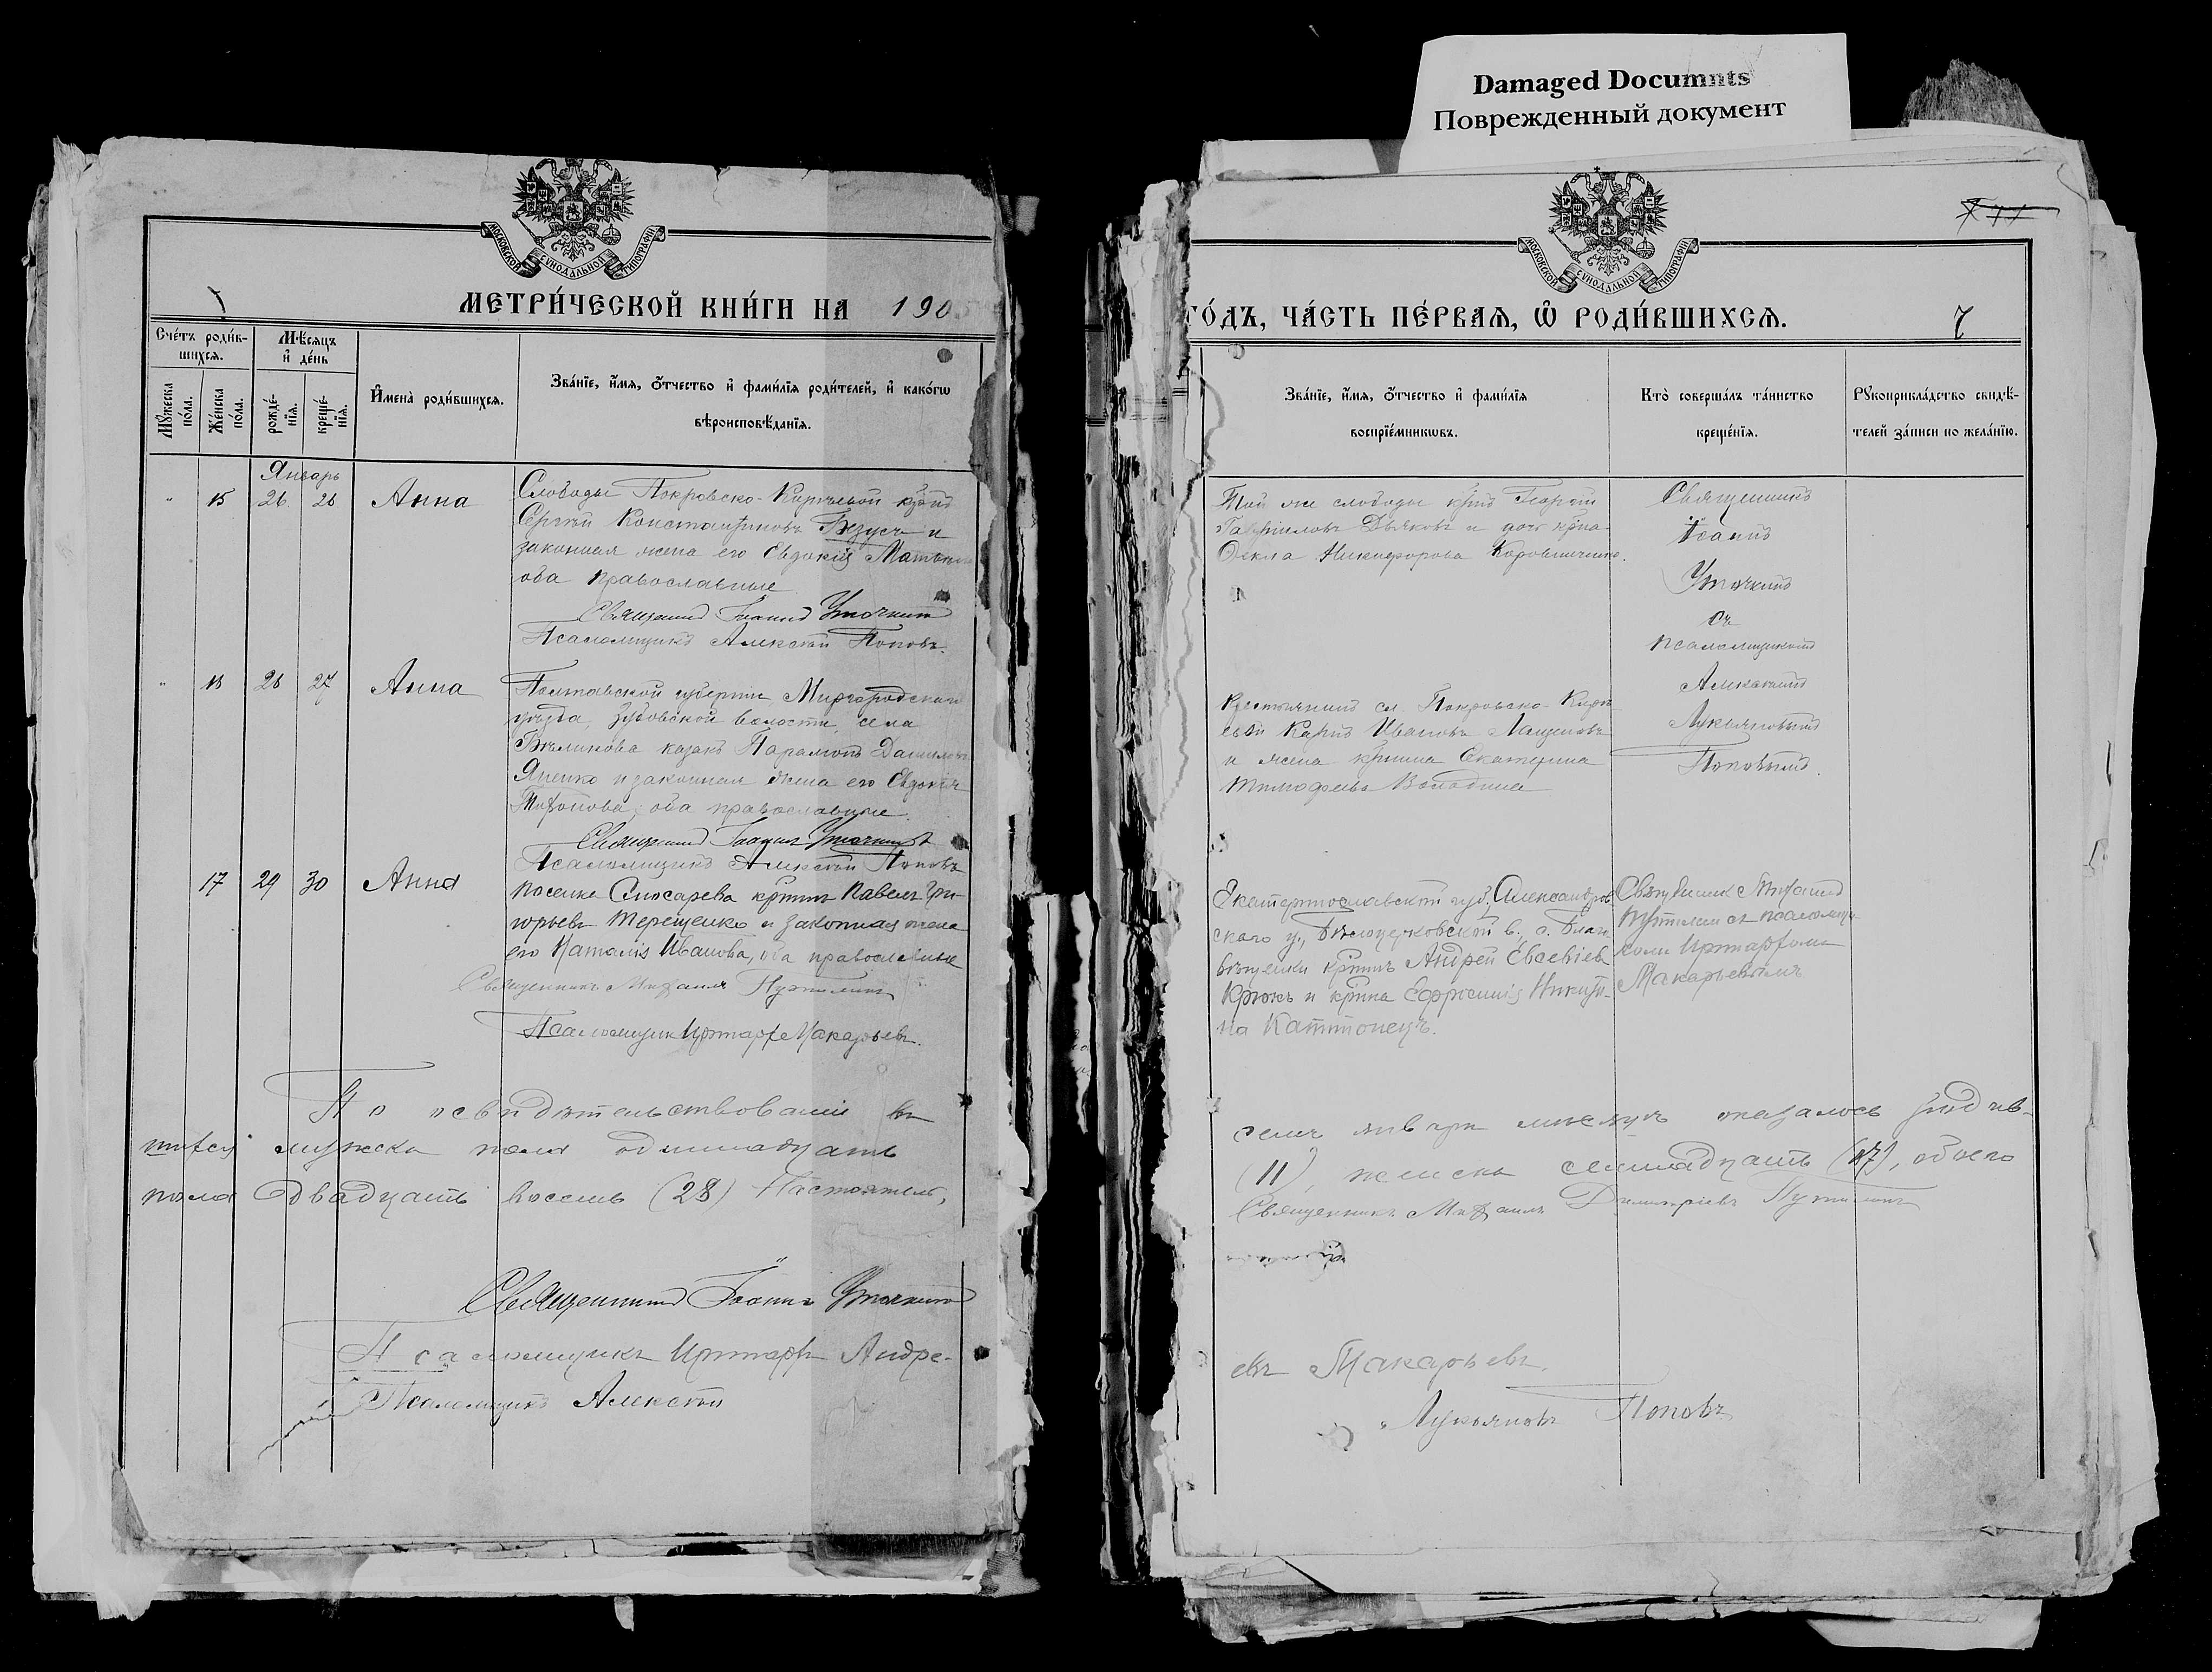 Damaged Documnts
Поврежденный документ
МОСКОВСКОЙ СѴНОДАЛЬНОЙ ТИПОГРАФІИ
МЕТРИ́ЧЕСКОЙ КНИ́ГИ НА 1905
Сче́тъ роди́в-
шихсѧ.
Мѣ́сѧцъ
и҆ де́нь
Мꙋ́жеска
по́ла.
Же́нска
по́ла.
рожде́-
нїѧ.
креще́-
нїѧ.
И҆мена̀ роди́вшихсѧ.
Зва́нїе, и҆́мѧ, ѻ҆́тчество и҆ фами́лїѧ роди́телей, и҆ како́гѡ
вѣроисповѣ́данїѧ.
Январь
" 15 26 26 Анна
Слободы Покровско-Киреевой крнъ
Сергѣй Константиновъ Безусъ и
законная жена его Евдокія
оба православные
Священникъ Іоаннъ Уточкинъ
Псаломщикъ Алексѣй Поповъ.
" 16 26 27 Анна
Полтавской губерніи, Миргородскаго
уѣзда, Зубовской волости, села
казакъ Парамонъ Даниловъ
Яценко и законная жена его Евдокія
оба православные.
Священникъ Іоаннъ Уточкинъ
Псаломщикъ Алексѣй Поповъ
17 29 30 Анна
поселка Слюсарева крнинъ Павелъ Гри
горьевъ Терещенко и законная жена
его Наталія Иванова, оба православные
Священникъ Михаилъ Путилинъ
Псаломщикъ Макарьевъ.
По освидѣтельствованіи въ
шихся мужска пола одиннадцать
пола двадцать восемь (28) Настоятель,
Священникъ Іоаннъ Уточкинъ
Псаломщикъ Андре-
Псаломщикъ Алексѣй
МОСКОВСКОЙ СѴНОДАЛЬНОЙ ТИПОГРАФІИ
ГО́ДЪ, ЧА́СТЬ ПЕ́РВАѦ, Ѡ҆ РОДИ́ВШИХСѦ. 7
Зва́нїе, и҆́мѧ, ѻ҆́тчество и҆ фами́лїѧ
воспрїе́мникѡвъ.
Кто̀ соверша́лъ та́инство
креще́нїѧ.
Рꙋкоприкла́дство свидѣ́-
телей за́писи по жела́нїю.
Той же слободы крнъ Георгій
Гавріиловъ Дьяковъ и дочь крна
Ѳекла Никифорова
Священникъ
Іоаннъ
Уточкинъ
съ
псаломщикомъ
Алексѣемъ
Лукьяновымъ
Поповымъ.
Крестьянинъ сл. Покровско-Кирѣ
евой Карпъ Ивановъ
и жена крнина Екатерина
Тимофеева
Екатеринославской губ., Александров
скаго у., Бѣлоцерковской в., с. Благо
вѣщенки крнинъ Андрей Евсевіевъ
Крюкъ и крнка Ефросинія
на
Священник Михаилъ
Путилин съ псаломщи
ком
Макарьевымъ
семъ январѣ мѣсяцѣ оказалось родив-
(11), женска семнадцать (17), обоего
Священникъ Михаилъ Димитріевъ Путилинъ
евъ Макарьевъ.
Лукьяновъ Поповъ